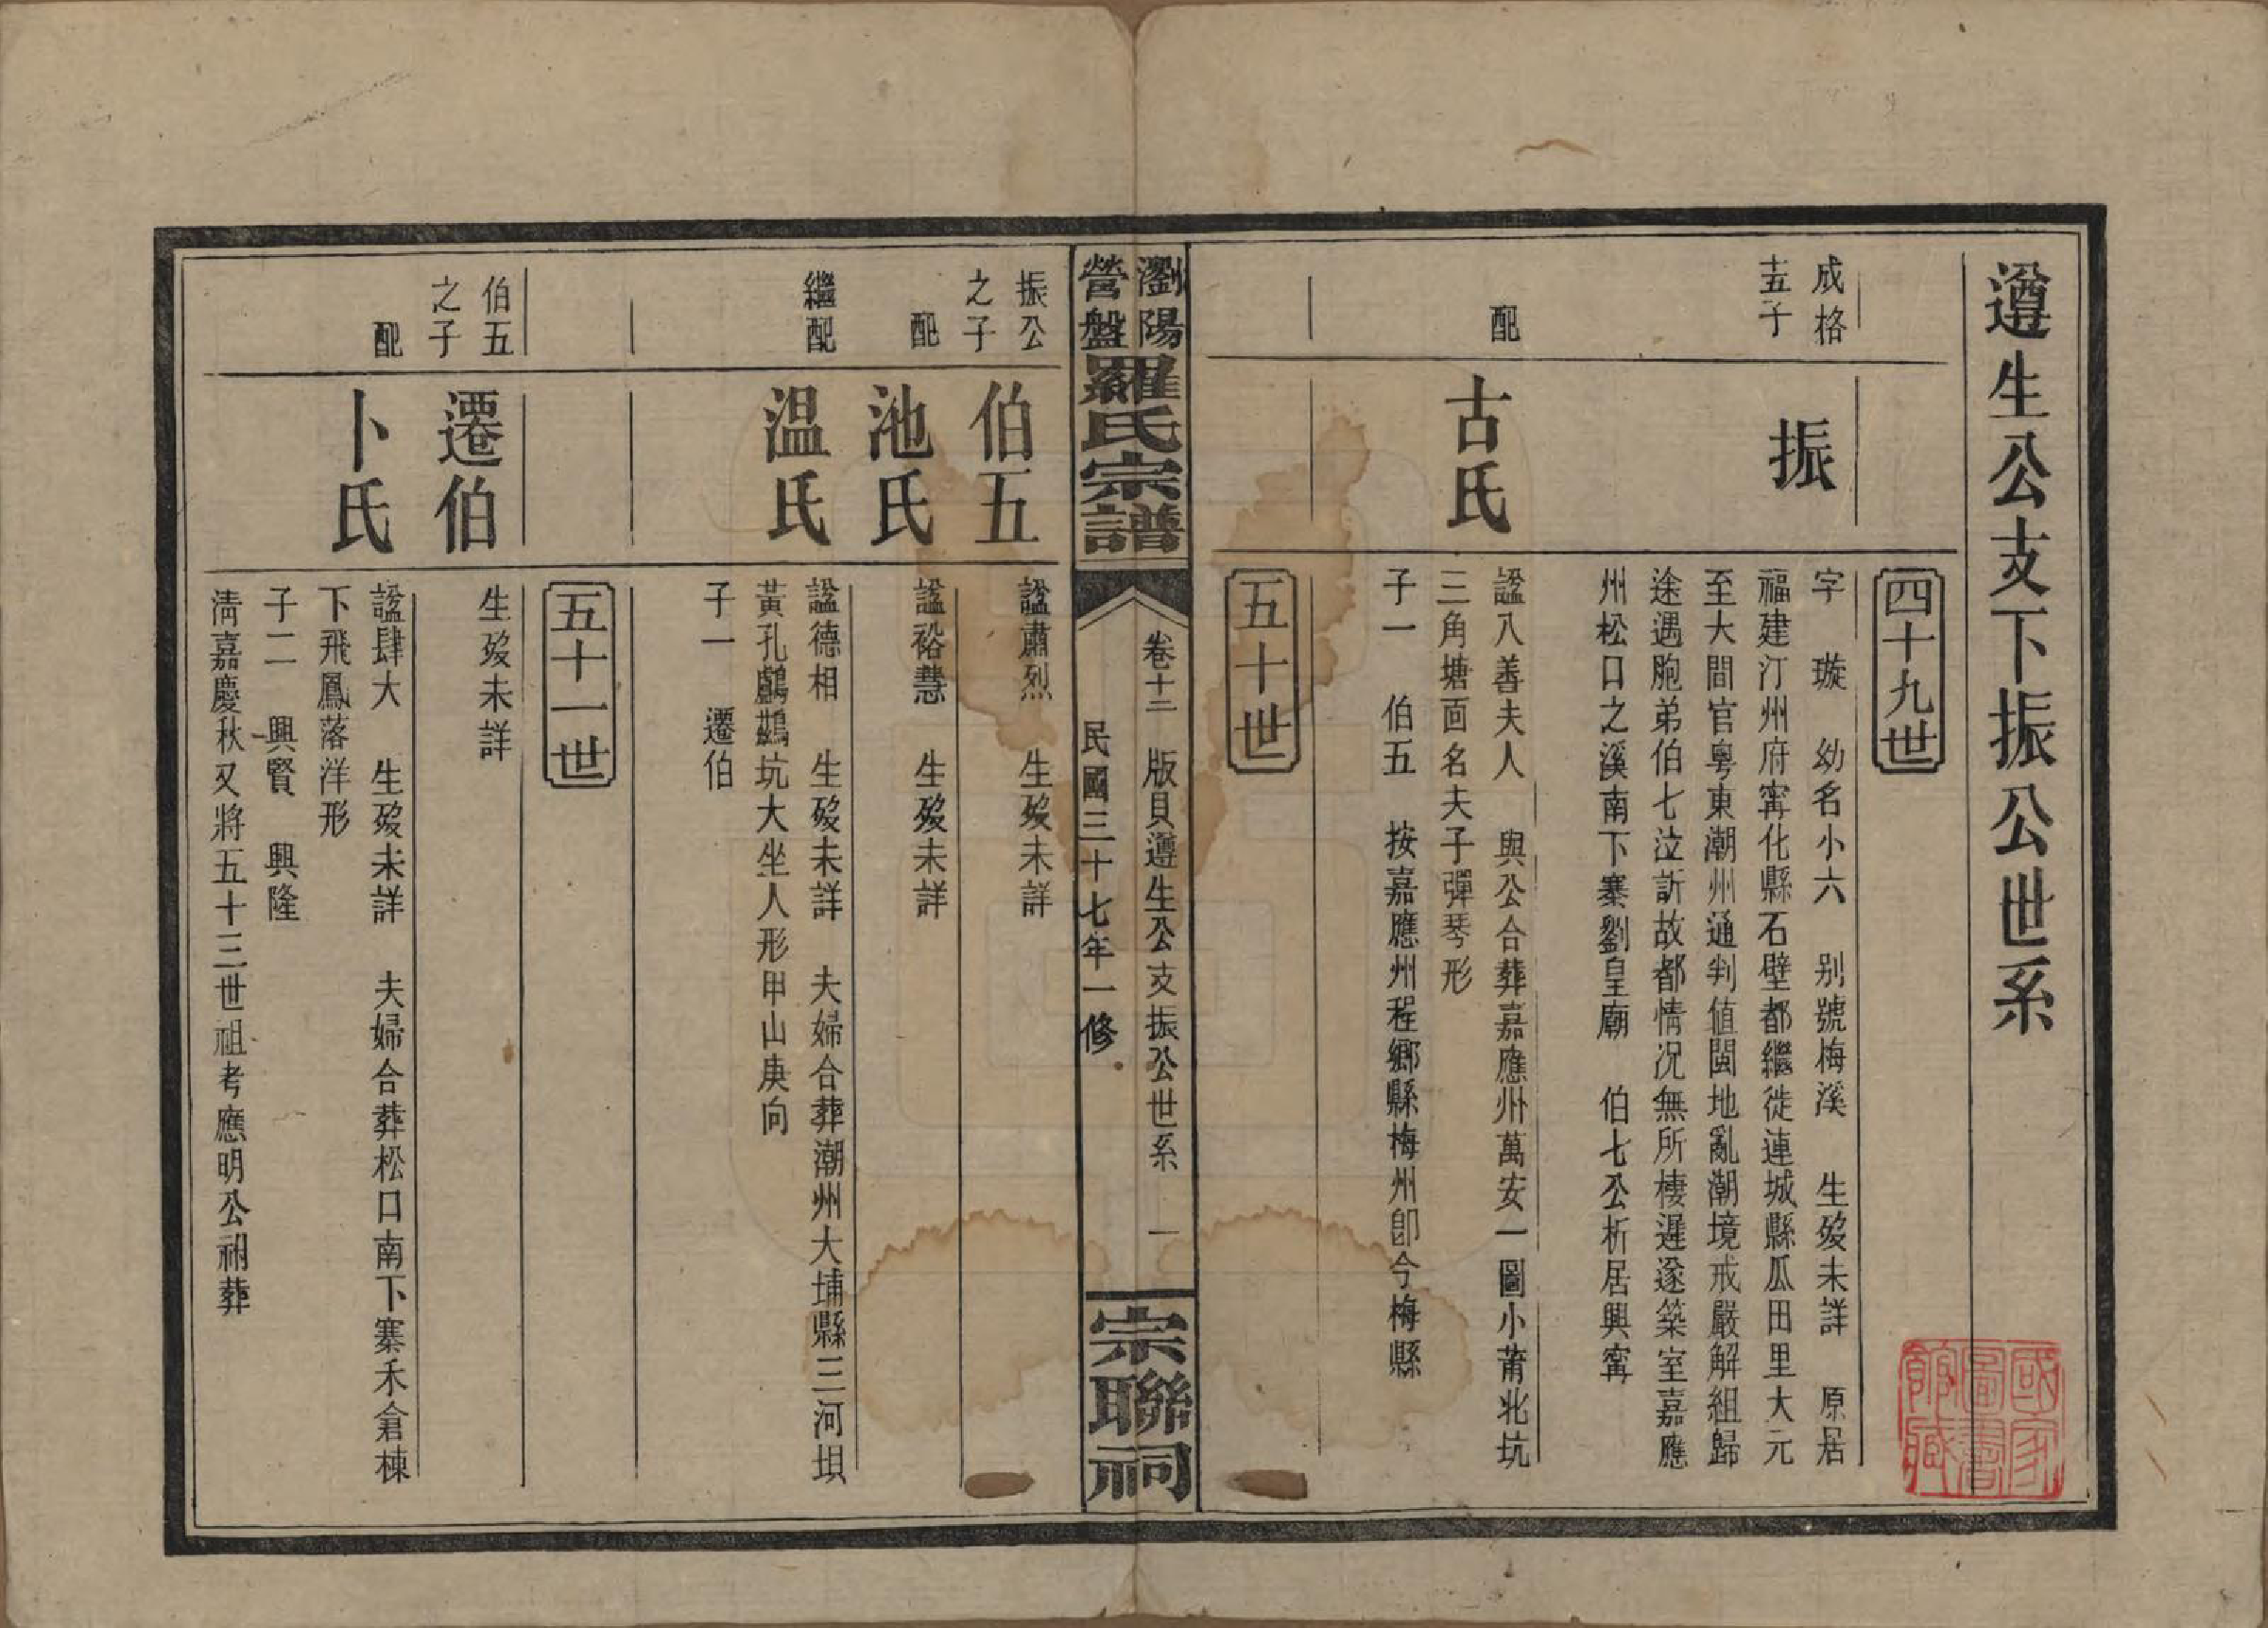 遵生公支下振公世系
四十九世
成格
十五子
振
字　璇　幼名小六　别號梅溪　生殁未詳　原居
福建汀州府寗化縣石壁都繼徙連城縣瓜田里大元
至大間官粤東潮州通判值閩地亂潮境戒嚴解組歸
途遇胞弟伯七泣訴故都情况無所棲遲遂築室嘉應
州松口之溪南下寨劉皇廟　伯七公析居興寗
配
古氏
諡八善夫人　與公合葬嘉應州萬安一圖小莆北坑
三角塘面名夫子彈琴形
子一　伯五　按嘉應州程鄉縣梅州即今梅縣
五十世
瀏陽
營盤
羅氏宗譜
卷十二　版貝遵生公支振公世系　一
民國三十七年一修
宗聯祠
振公
之子
伯五
諡肅烈　生殁未詳
配
池氏
諡裕慧　生殁未詳
繼配
温氏
諡德相　生殁未詳　夫婦合葬潮州大埔縣三河坝
黃孔鸕鷀坑大坐人形甲山庚向
子一　遷伯
五十一世
伯五
之子
遷伯
生殁未詳
配
卜氏
諡肆大　生殁未詳　夫婦合葬松口南下寨禾倉棟
下飛鳳落洋形
子二　興賢　興隆
清嘉慶秋又將五十三世祖考應明公祔葬
國家
圖書
館藏